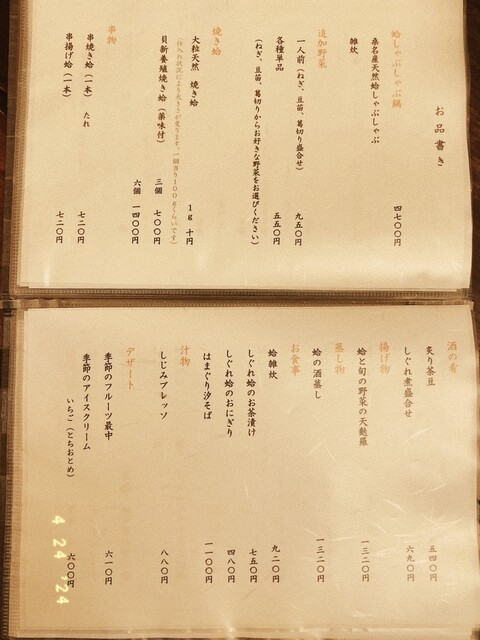 お品書き
蛤しゃぶしゃぶ鍋
桑名産天然蛤しゃぶしゃぶ 四七〇〇円
雑炊
追加野菜
一人前（ねぎ、豆苗、葛切り盛合せ） 九五〇円
各種単品 五五〇円
（ねぎ、豆苗、葛切りからお好きな野菜をお選びください）
焼き蛤
大粒天然 焼き蛤 1g 十円
（仕入れ状況により大きさが変ります。一個当り100gくらいです）
貝新養殖焼き蛤（薬味付） 三個 七〇〇円
六個 一四〇〇円
串物
串焼き蛤（一本） たれ 七二〇円
串揚げ蛤（一本） 七二〇円
酒の肴
炙り茶豆 五四〇円
しぐれ煮盛合せ 六九〇円
揚げ物
蛤と旬の野菜の天麩羅 一三二〇円
蒸し物
蛤の酒蒸し 一三二〇円
お食事
蛤雑炊 九二〇円
しぐれ蛤のお茶漬け 七五〇円
しぐれ蛤のおにぎり 四八〇円
はまぐり汐そば 一一〇〇円
汁物
しじみブレッソ 八八〇円
デザート
季節のフルーツ最中 六一〇円
季節のアイスクリーム
いちご（とちおとめ） 六〇〇円
4 24 '24